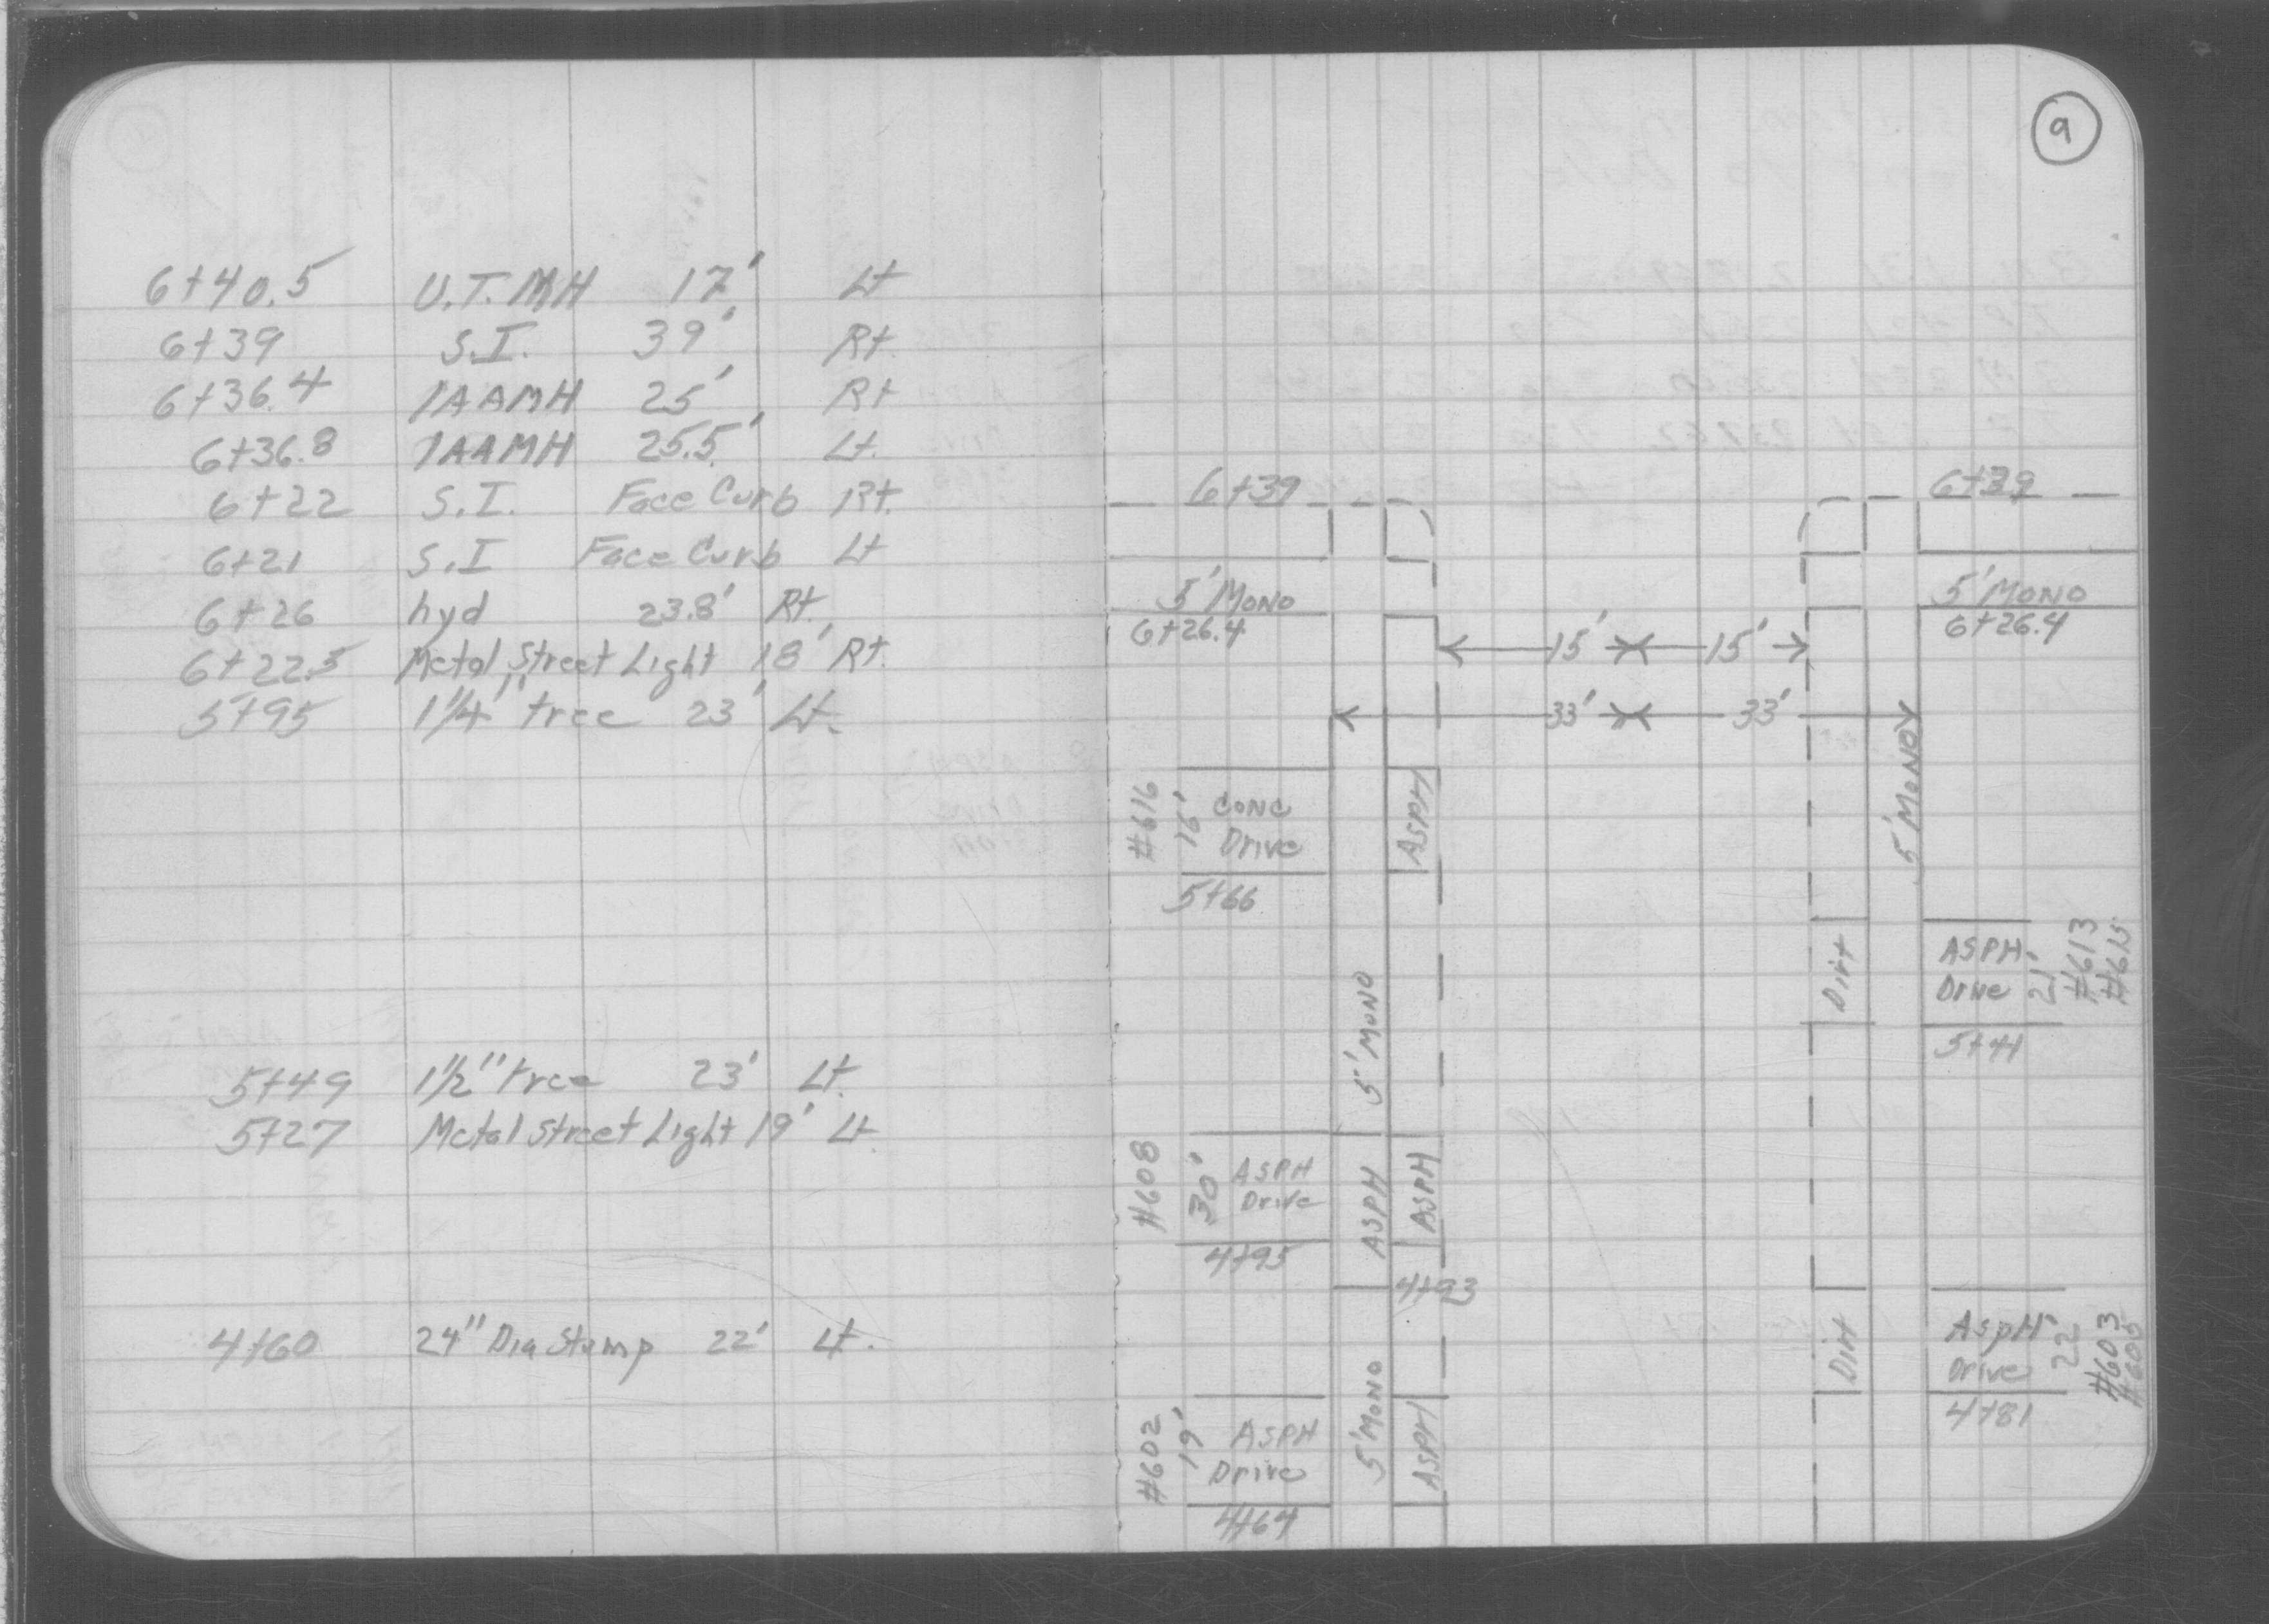 9
6+40.5 U.T. MH 17' Lt
6+39 S.I. 39' Rt.
6+36.4 TAAMH 25' Rt
6+36.8 TAAMH 25.5' Lt.
6+22 S.I. Face Curb Rt.
6+21 S.I Face Curb Lt
6+26 hyd 23.8' Rt.
6+22.5 Metal Street Light 18' Rt.
5+95 1 1/4" tree 23' Lt.
5+49 1 1/2" tree 23' Lt.
5+27 Metal Street Light 19' Lt.
4+60 24" Dia Stump 22' Lt.
6+39 6+39
5' MONO 5' MONO
6+26.4 6+26.4
15' 15'
33' 33'
5' MONO
#616 16' CONC Drive ASPH
5+66
Dirt ASPH Drive 21' #613 #615
5+41
5' MONO
#608 30' ASPH Drive ASPH ASPH
4+95
4+93
Dirt AspH Drive 22' #603 #605
4+81
#602 19' ASPH Drive 5' MONO ASPH
4+64